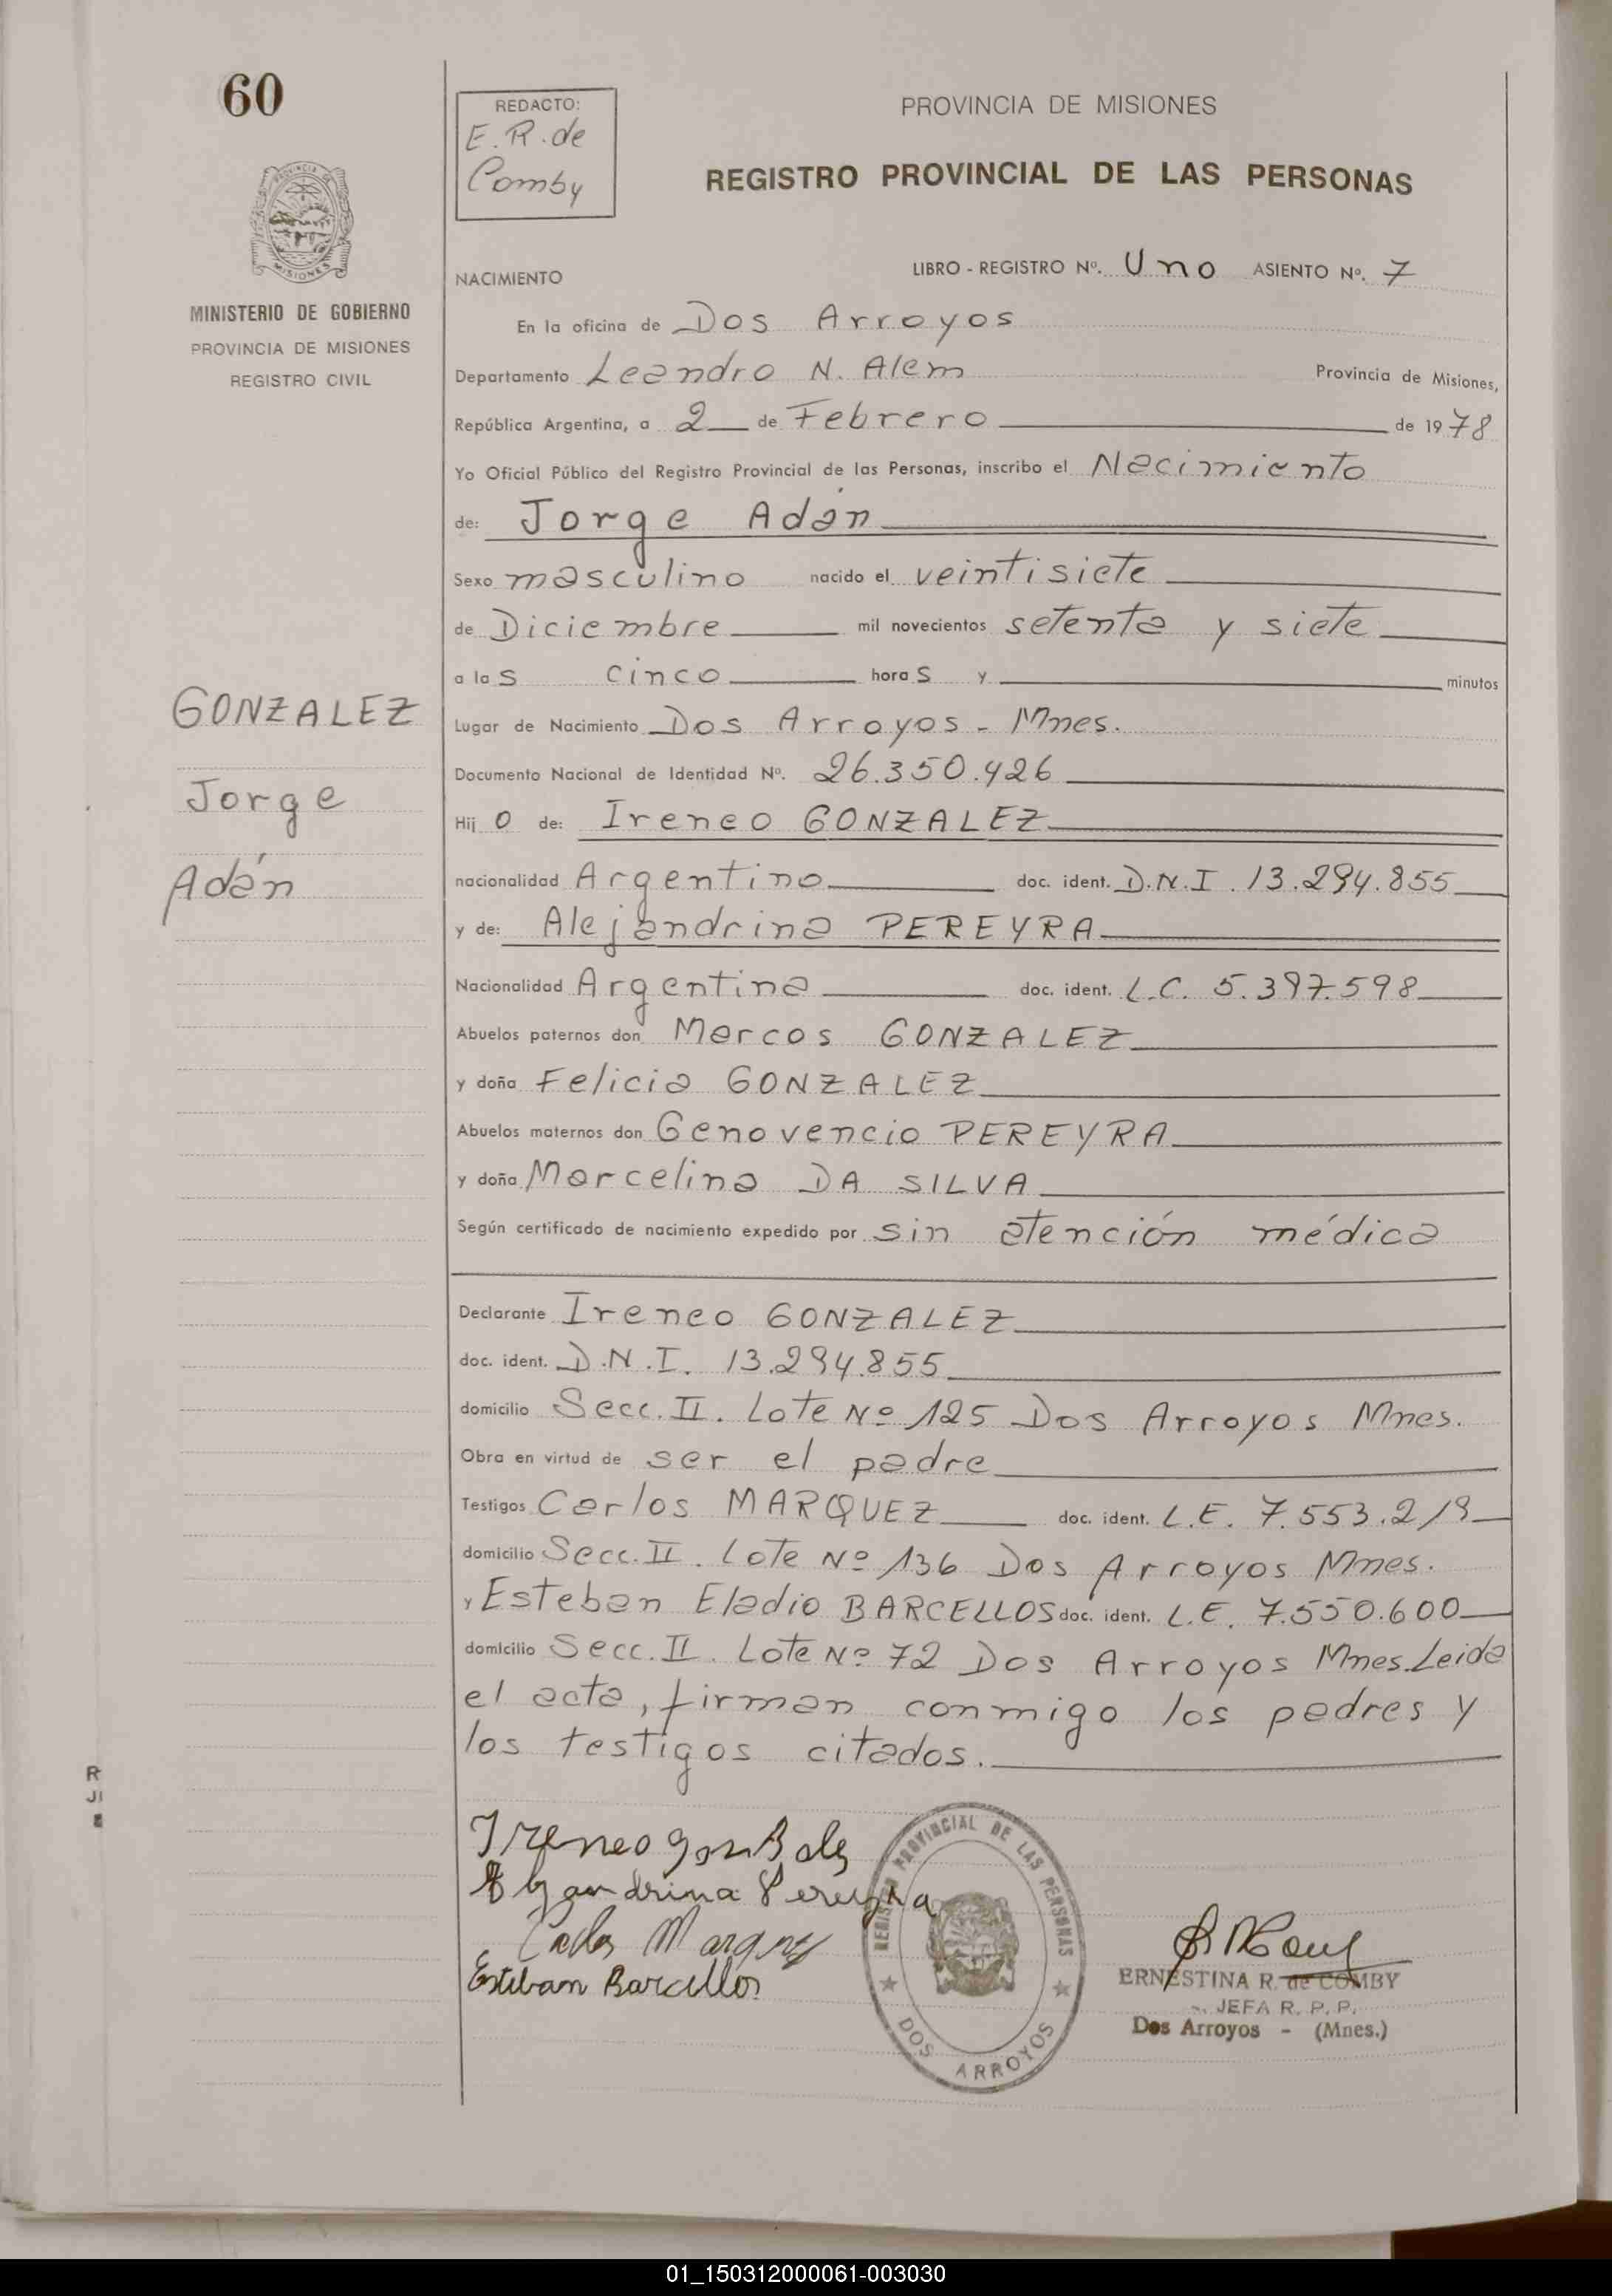 60
REDACTO:
E. R. de
Comby
PROVINCIA DE MISIONES
REGISTRO PROVINCIAL DE LAS PERSONAS
PROVINCIA DE
MISIONES
MINISTERIO DE GOBIERNO
PROVINCIA DE MISIONES
REGISTRO CIVIL
NACIMIENTO
LIBRO - REGISTRO Nº. Uno ASIENTO Nº. 7
En la oficina de Dos Arroyos
Departamento Leandro N. Alem Provincia de Misiones,
República Argentina, a 2 de Febrero de 1978
Yo Oficial Público del Registro Provincial de las Personas, inscribo el Nacimiento
de: Jorge Adán
Sexo masculino nacido el veintisiete
de Diciembre mil novecientos setenta y siete
a las cinco horas y minutos
GONZALEZ
Jorge
Adán
Lugar de Nacimiento Dos Arroyos - Mnes.
Documento Nacional de Identidad Nº. 26.350.426
Hijo de: Ireneo GONZALEZ
nacionalidad Argentino doc. ident. D.N.I. 13.294.855
y de: Alejandrina PEREYRA
Nacionalidad Argentina doc. ident. L.C. 5.397.598
Abuelos paternos don Marcos GONZALEZ
y doña Felicia GONZALEZ
Abuelos maternos don Genovencio PEREYRA
y doña Marcelina DA SILVA
Según certificado de nacimiento expedido por sin atención médica
Declarante Ireneo GONZALEZ
doc. ident. D.N.I. 13.294.855
domicilio Secc. II. Lote Nº 125 Dos Arroyos Mnes.
Obra en virtud de ser el padre
Testigos Carlos MARQUEZ doc. ident. L.E. 7.553.219
domicilio Secc. II. Lote Nº 136 Dos Arroyos Mnes.
y Esteban Eladio BARCELLOS doc. ident. L.E. 7.550.600
domicilio Secc. II. Lote Nº 72 Dos Arroyos Mnes. Leida
el acta, firman conmigo los padres y
los testigos citados.
R
JI
Ireneo gonzales
Alejandrina Pereyra
Carlos Marquez
Esteban Barcellos
REGISTRO PROVINCIAL DE LAS PERSONAS
DOS ARROYOS
ERNESTINA R. de COMBY
JEFA R. P. P.
Dos Arroyos - (Mnes.)
01_150312000061-003030